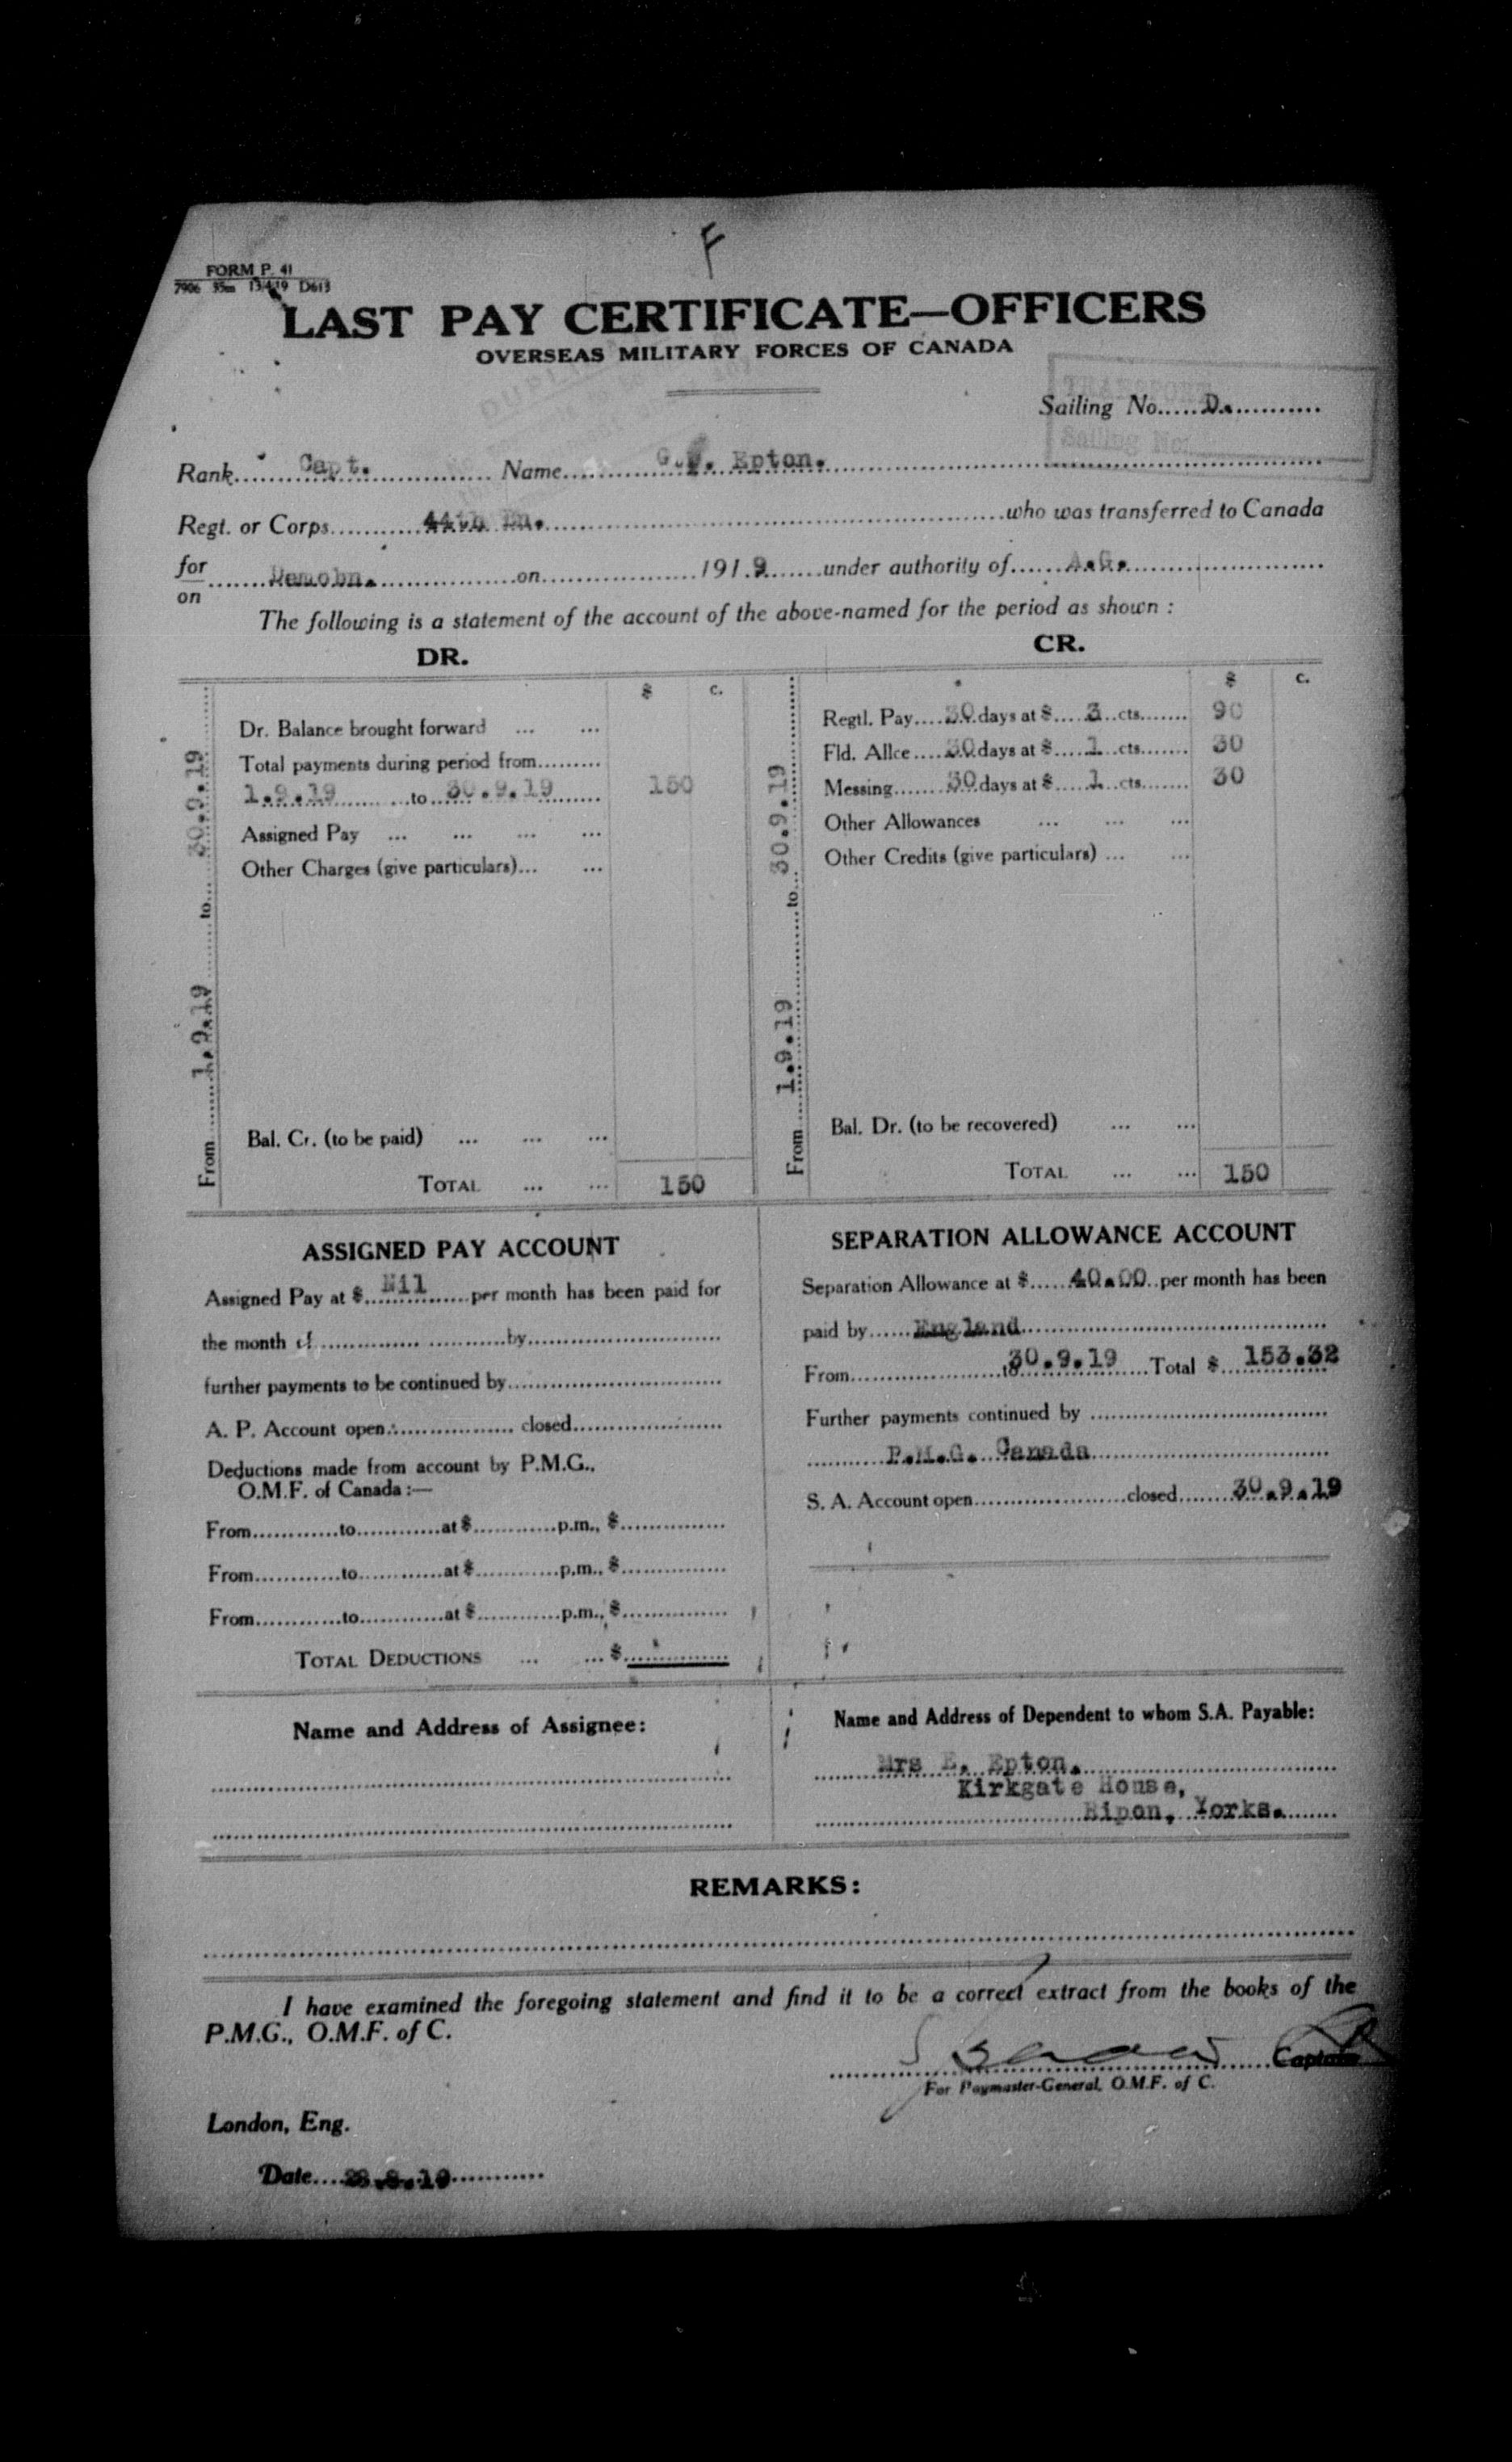 F
FORM P. 41
7906 35m 13/4/19 D613
LAST PAY CERTIFICATE—OFFICERS
OVERSEAS MILITARY FORCES OF CANADA
TRANSPORT
Sailing No.....D.
Sailing No.
Rank Capt. Name Epton.
Regt. or Corps 44th Bn. who was transferred to Canada
for on Demobn. on 1919 under authority of A.G.
The following is a statement of the account of the above-named for the period as shown :
DR.
$ c.
From 1.9.19 to 30.9.19
Dr. Balance brought forward ... ...
Total payments during period from
1.9.19 to 30.9.19 150
Assigned Pay ... ... ... ...
Other Charges (give particulars)... ...
Bal. Cr. (to be paid) ... ... ...
TOTAL ... ... 150
CR.
$ c.
From 1.9.19 to 30.9.19
Regtl. Pay 30 days at $ 3 cts. 90
Fld. Allce 30 days at $ 1 cts. 30
Messing 30 days at $ 1 cts. 30
Other Allowances ... ... ...
Other Credits (give particulars) ... ...
Bal. Dr. (to be recovered) ... ...
TOTAL ... ... 150
ASSIGNED PAY ACCOUNT
Assigned Pay at $ Nil per month has been paid for
the month of by
further payments to be continued by
A. P. Account open closed
Deductions made from account by P.M.G.,
O.M.F. of Canada :—
From to at $ p.m., $
From to at $ p.m., $
From to at $ p.m., $
TOTAL DEDUCTIONS ... ... $
SEPARATION ALLOWANCE ACCOUNT
Separation Allowance at $ 40.00 per month has been
paid by England
From to 30.9.19 Total $ 153.32
Further payments continued by
P.M.G. Canada
S. A. Account open closed 30.9.19
Name and Address of Assignee:
Name and Address of Dependent to whom S.A. Payable:
Mrs E. Epton.
Kirkgate House,
Ripon, Yorks.
REMARKS:
I have examined the foregoing statement and find it to be a correct extract from the books of the
P.M.G., O.M.F. of C.
Captain
For Paymaster-General, O.M.F. of C.
London, Eng.
Date